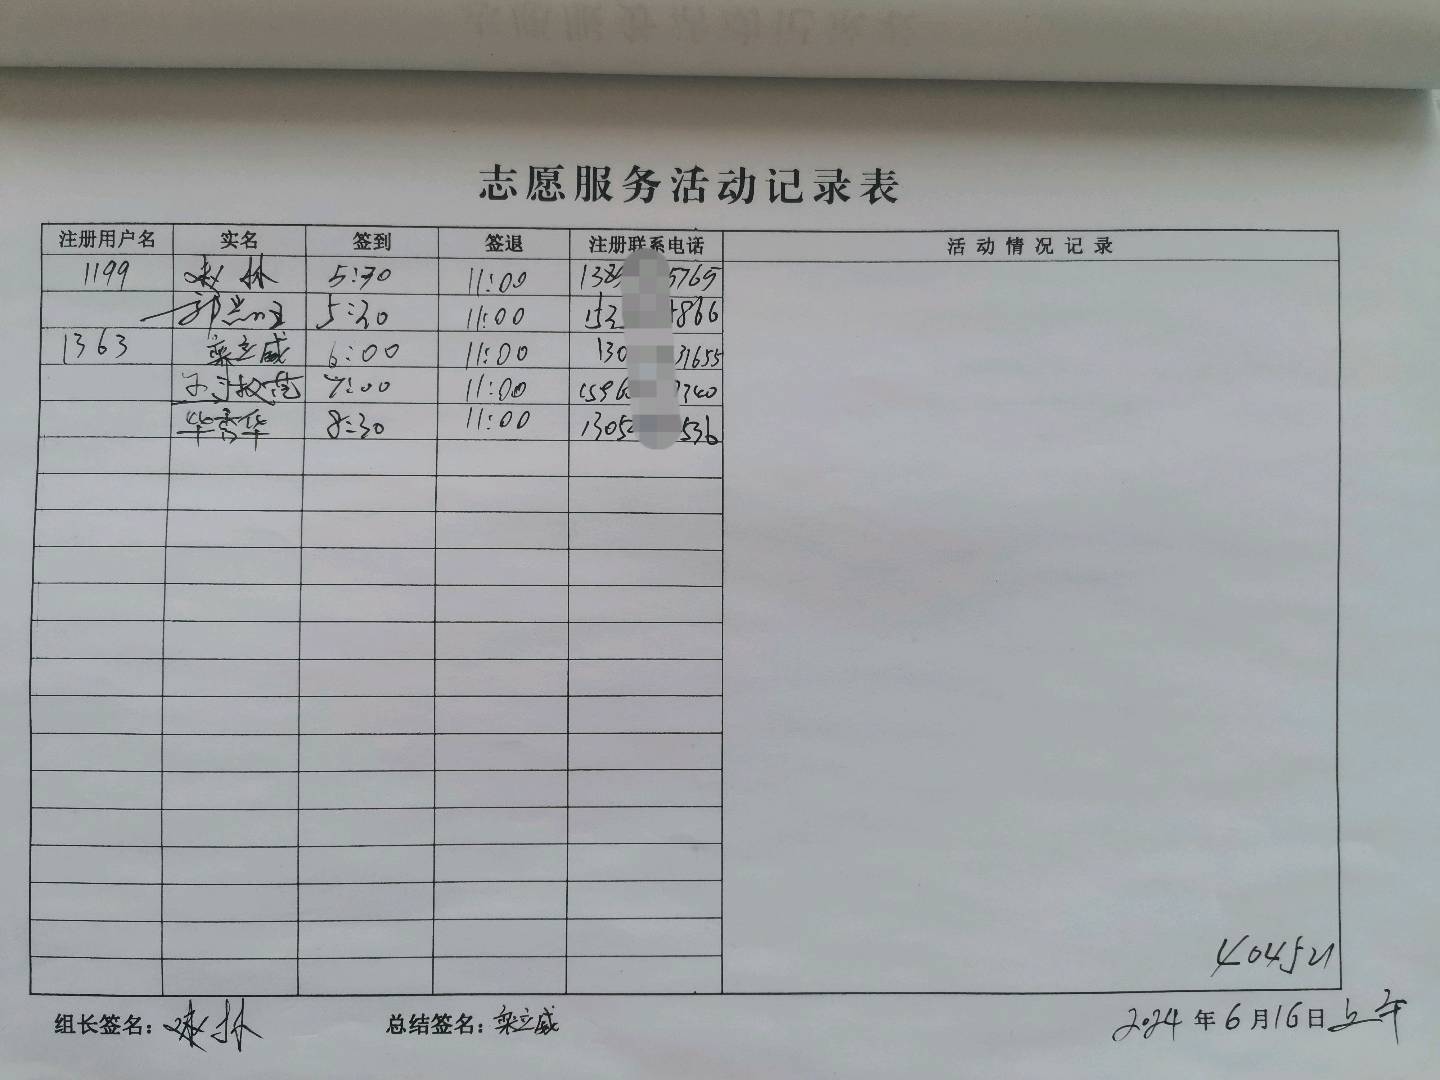 志愿服务活动记录表
注册用户名 实名 签到 签退 注册联系电话 活动情况记录
1199 林 5:30 11:00 138 5765
郭 5:30 11:00 152 866
1363 栾立威 6:00 11:00 130 31655
7:00 11:00 1596 340
华秀华 8:30 11:00 1305 536
404521
组长签名: 林 总结签名: 栾立威 2024年6月16日上午